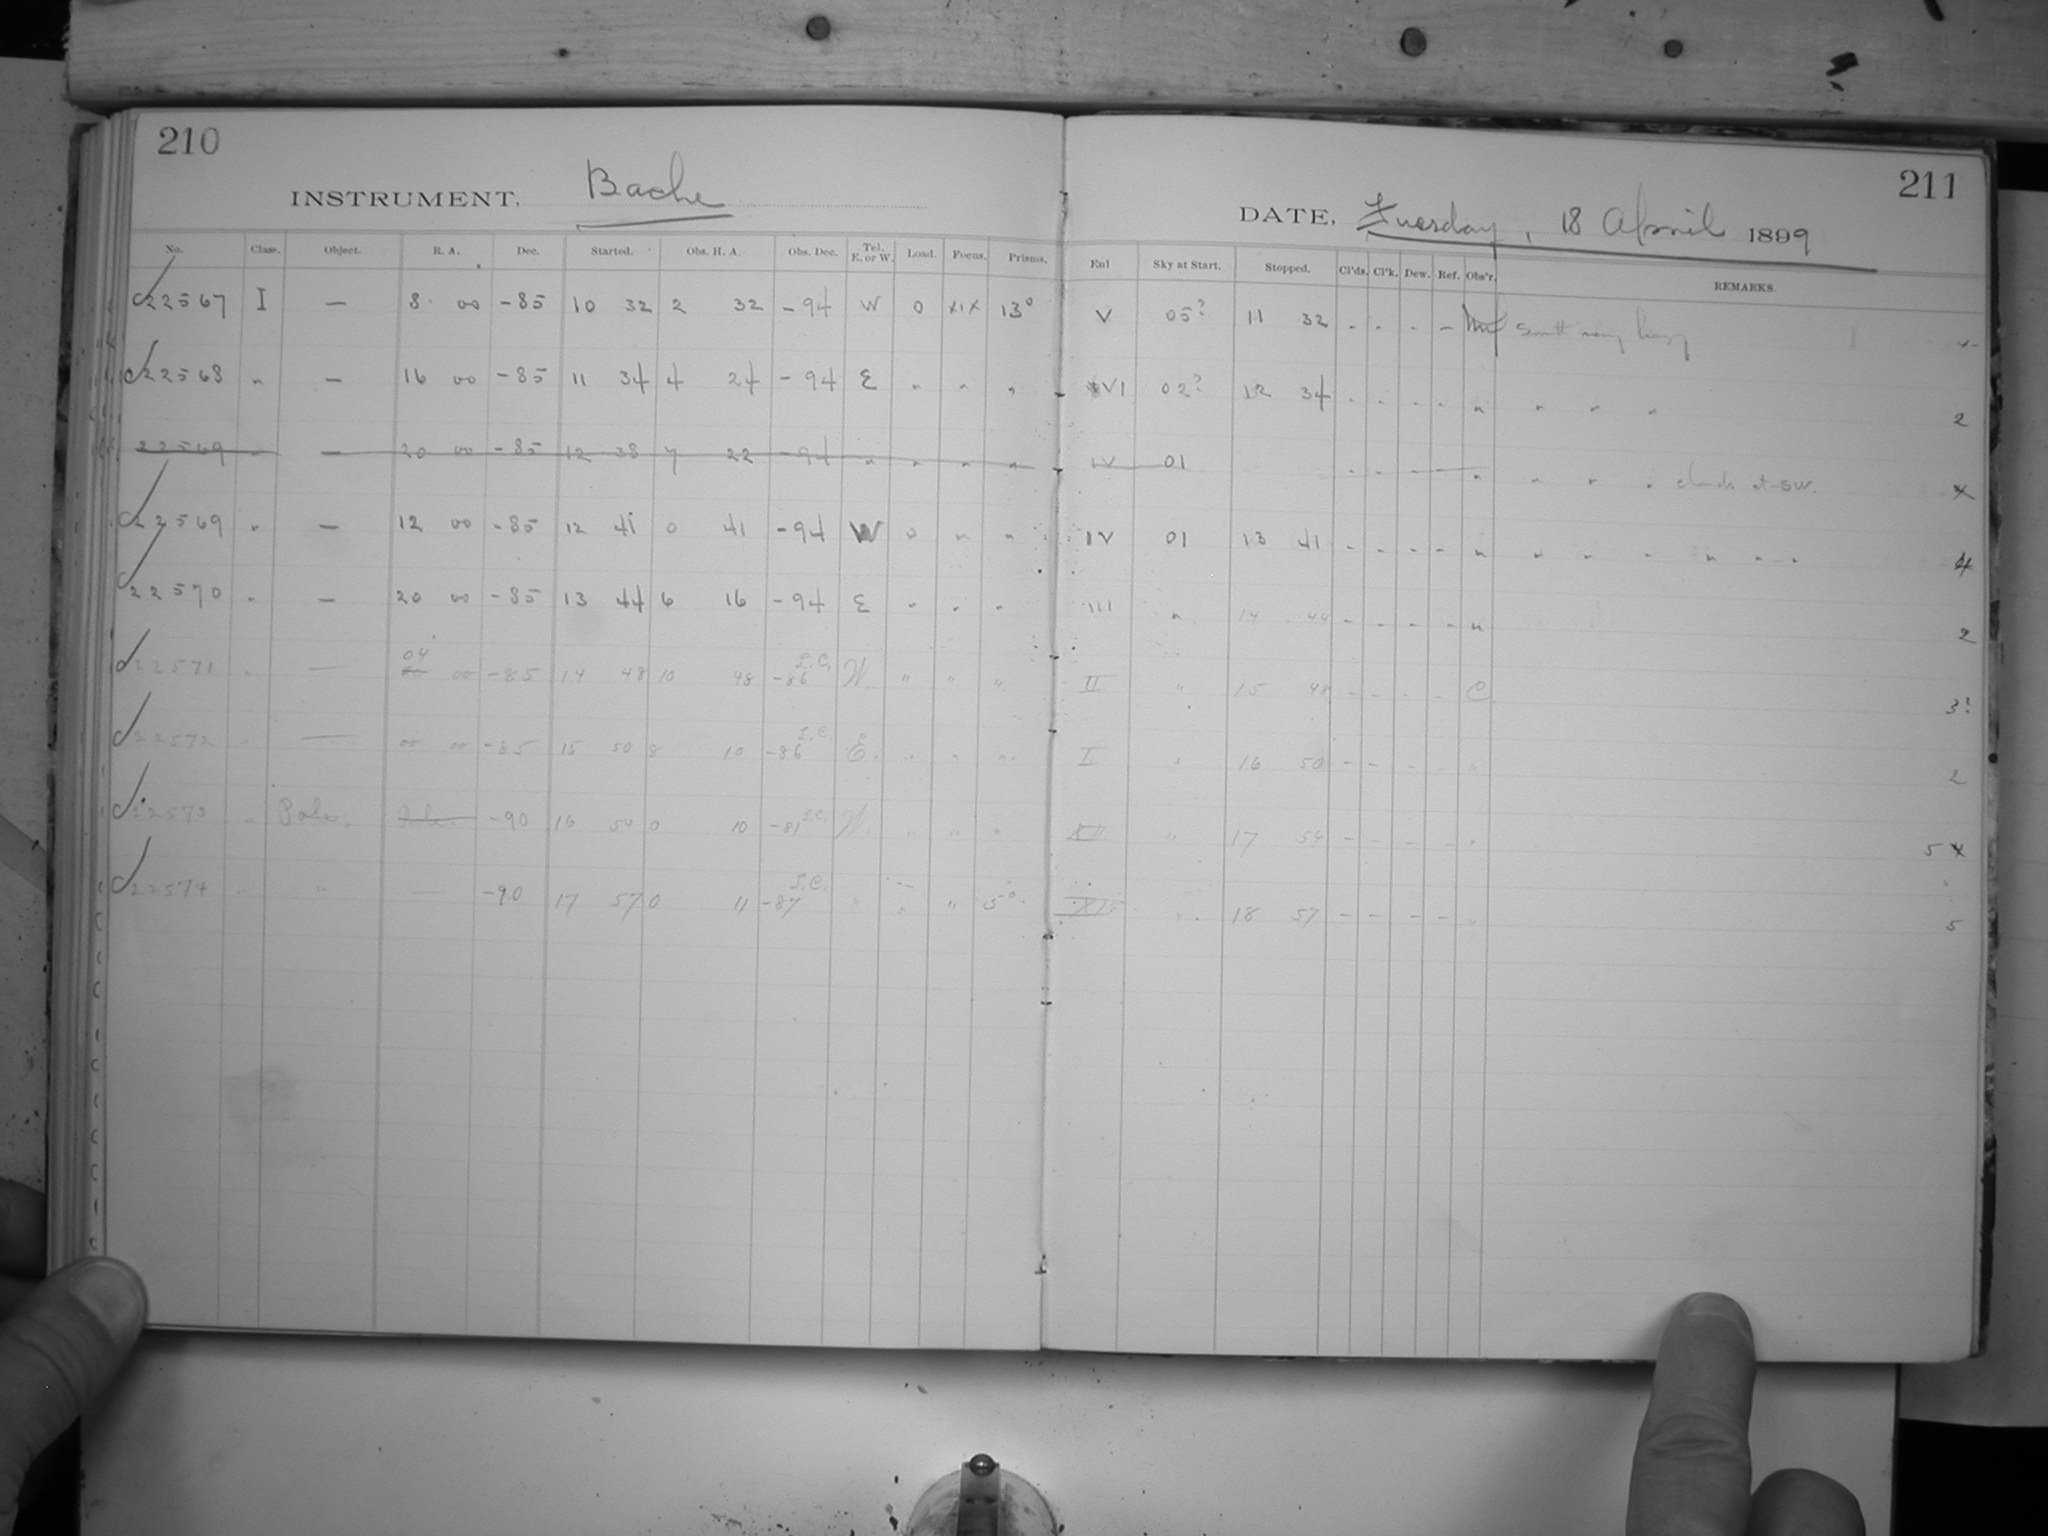 210
INSTRUMENT. Bache
No. Class. Object. R. A. Dec. Started. Obs. H. A. Obs. Dec. Tel. E. or W. Load. Focus. Prisms.
c22567 I — 8 00 -85 10 32 2 32 -94 W 0 XIX 13°
c22568 " — 16 00 -85 11 34 4 24 -94 E " " "
22569 " — 20 00 -85 12 38 7 22 -94 " " " "
c22569 " — 12 00 -85 12 41 0 41 -94 W 0 " "
c22570 " — 20 00 -85 13 44 6 16 -94 E " " "
c22571 " — 04 00 -85 14 48 10 48 -86 W " " "
c22572 " — 00 00 -85 15 50 8 10 -86 E. " " "
c22573 " Pole. -90 16 54 0 10 -81 W. " " "
c22574 " " — -90 17 57 0 11 -87 " " " 5°
211
DATE, Tuesday, 18 April 1899
Enl Sky at Start. Stopped. Cl'ds. Cl'k. Dew. Ref. Obs'r. REMARKS.
V 05? 11 32 - - - - hazy
VI 02? 12 34 - - - - " " " " 2
IV 01 - - - - " " " " clouds at SW.
IV 01 13 41 - - - - " " " " " " " 4
III " 14 44 - - - - " 2
II " 15 48 - - - - C 3?
I " 16 50 - - - - " 2
" 17 54 - - - - " 5
" 18 57 - - - - " 5